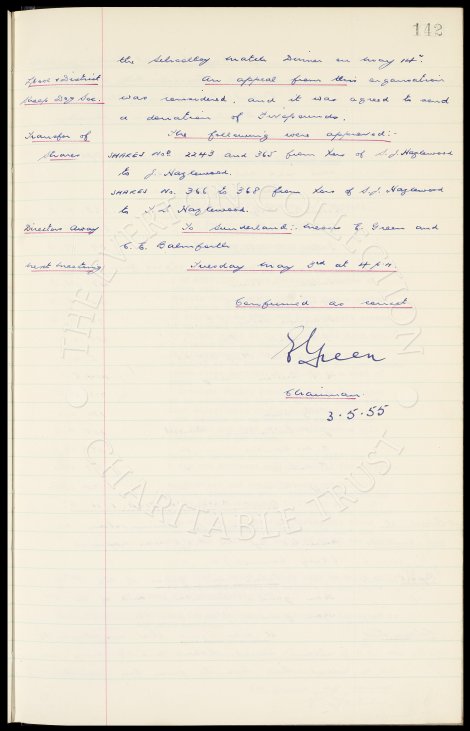 142
the Schoolboy match Dinner on May 14th.
L'pool & District
Sheep Dog Soc.
An appeal from this organisation
was considered, and it was agreed to send
a donation of Two pounds.
Transfer of
Shares
The following were approved:-
SHARES Nos 2243 and 365 from Exors of S.J. Hazlewood
to J. Hazlewood.
SHARES No. 366 to 368 from Exors of S.J. Hazlewood
to Hazlewood.
Directors Away
To Sunderland:- Messrs E. Green and
C. E. Balmforth
Next Meeting
Tuesday May 3rd at 4 p.m.
Confirmed as correct
E Green
Chairman.
3.5.55
THE EVERTON COLLECTION
CHARITABLE TRUST